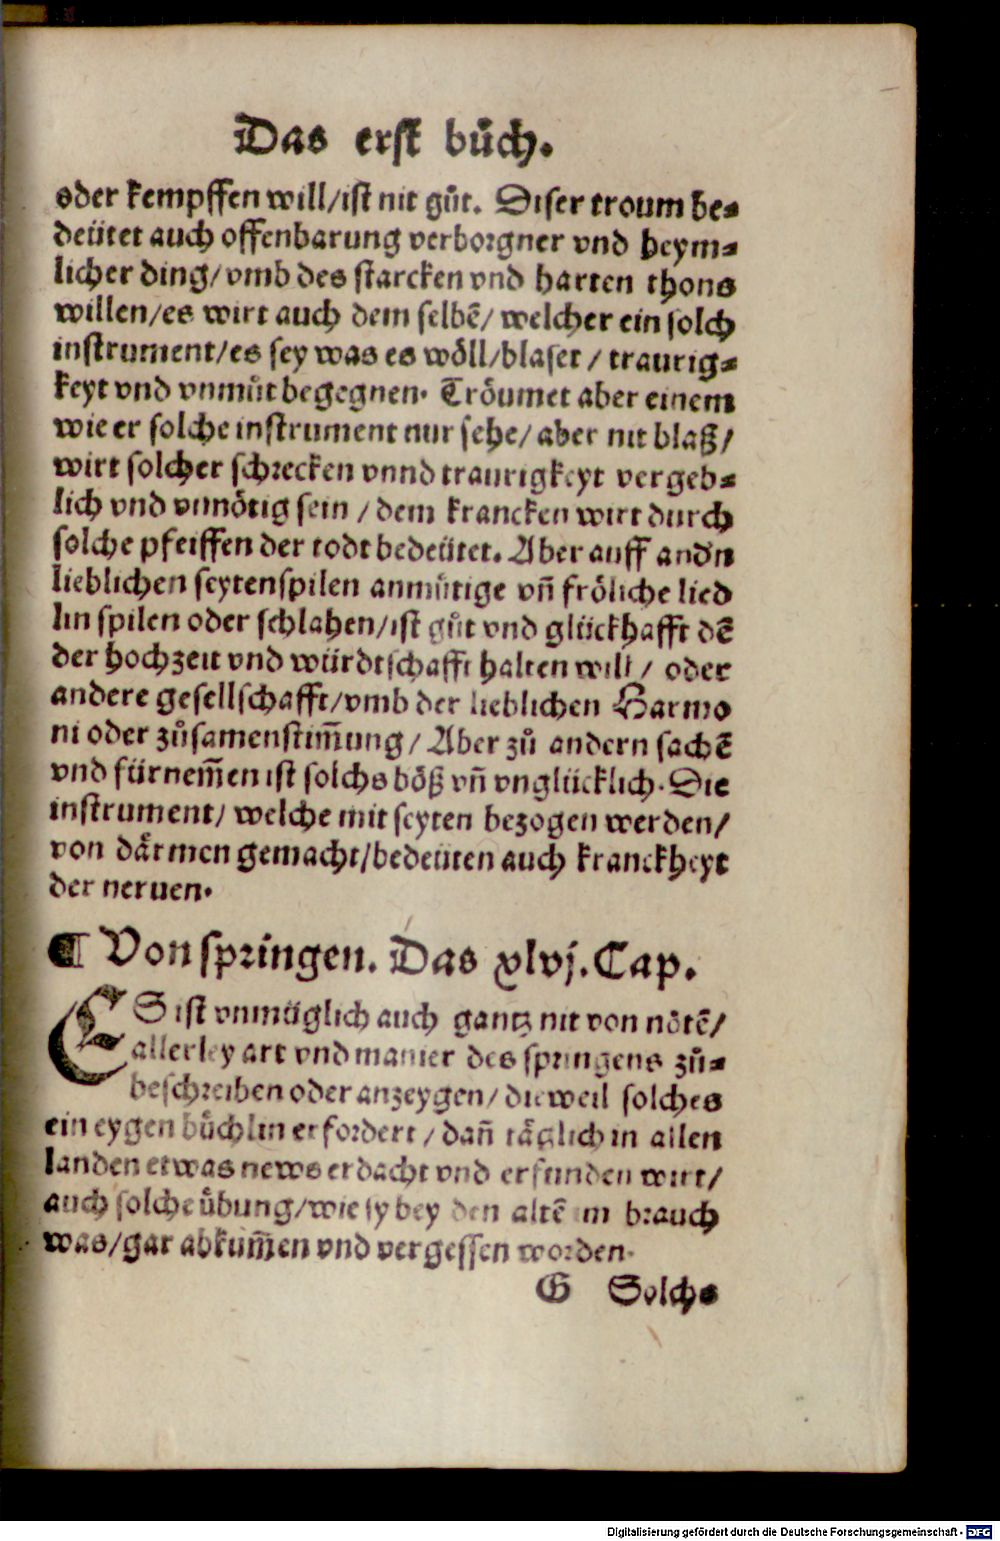 Das erst bůch.
oder kempffen will/ist nit gůt. Diser troum be⸗
deütet auch offenbarung verborgner vnd heym⸗
licher ding/vmb des starcken vnd harten thons
willen/es wirt auch dem selbẽ/ welcher ein solch
instrument/es sey was es wöll/blaset / traurig⸗
keyt vnd vnmůt begegnen. Tröumet aber einem
wie er solche instrument nur sehe/ aber nit blaß/
wirt solcher schrecken vnnd traurigkeyt vergeb⸗
lich vnd vnnötig sein / dem krancken wirt durch
solche pfeiffen der todt bedeütet. Aber auff andn
lieblichen seytenspilen anmůtige vñ fröliche lied
lin spilen oder schlahen/ist gůt vnd glückhafft dẽ
der hochzeit vnd würdtschafft halten will / oder
andere gesellschafft/vmb der lieblichen Harmo
ni oder zůsamenstim̃ung/ Aber zů andern sachẽ
vnd fürnem̃en ist solchs böß vñ vnglücklich. Die
instrument/ welche mit seyten bezogen werden/
von därmen gemacht/bedeuten auch kranckheyt
der neruen.
¶ Von springen. Das xlvj. Cap.
ES ist vnmüglich auch gantz nit von nötẽ/
allerley art vnd manier des springens zů⸗
beschreiben oder anzeygen/ dieweil solches
ein eygen bůchlin erfordert / dañ täglich in allen
landen etwas news erdacht vnd erfunden wirt/
auch solche übung/wie sy bey den altẽ im brauch
was/gar abkum̃en vnd vergessen worden.
G Solchs
Digitalisierung gefördert durch die Deutsche Forschungsgemeinschaft - DFG